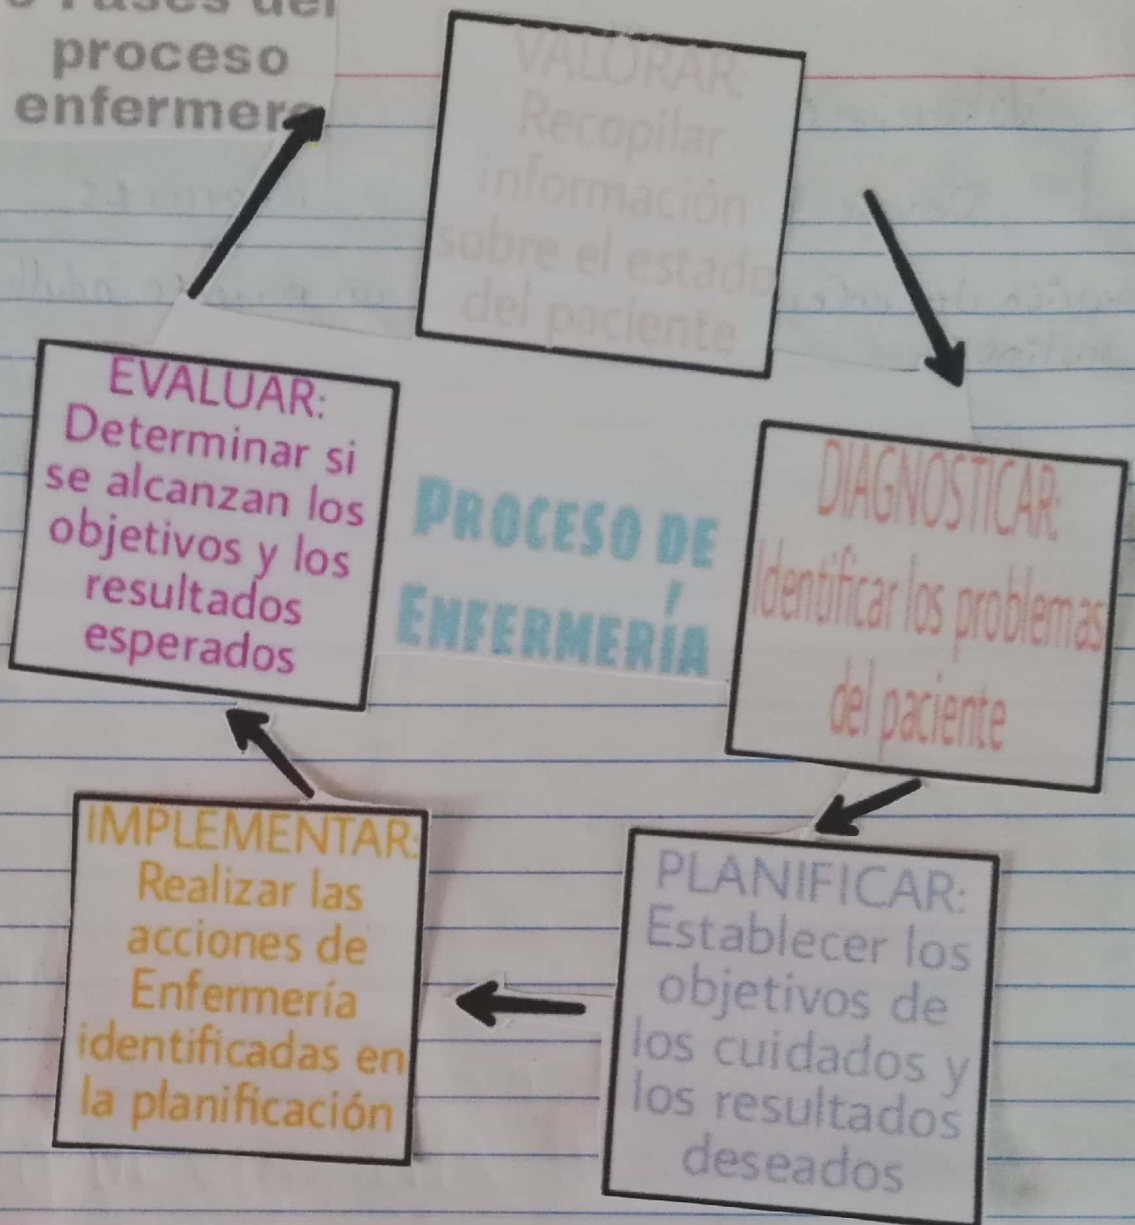 Fases del
proceso
enfermero
VALORAR:
Recopilar
información
sobre el estado
del paciente
DIAGNOSTICAR:
Identificar los problemas
del paciente
PLANIFICAR:
Establecer los
objetivos de
los cuidados y
los resultados
deseados
IMPLEMENTAR:
Realizar las
acciones de
Enfermería
identificadas en
la planificación
EVALUAR:
Determinar si
se alcanzan los
objetivos y los
resultados
esperados
PROCESO DE
ENFERMERÍA